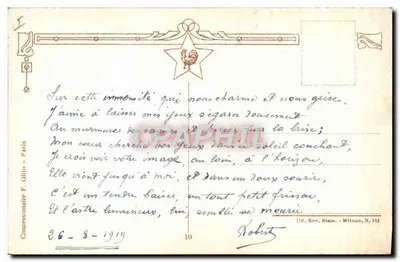 Sur cette immensité qui nous charme et nous grise,
J'aime à laisser mes yeux s'égarer doucement
Au murmure des vagues et par la brise;
Mon cœur cherche vos yeux dans le soleil couchant,
Je crois voir votre image, au loin, à l'horizon,
Elle vient jusqu'à moi, et dans un doux sourir,
C'est un tendre baiser, un tout petit frisson,
Et l'astre lumineux, lui, semble se mourir
Robert
26-8-1919
10
Concessionnaire F. Gino - Paris
Uff. Rev. Stam. - Milano, N.